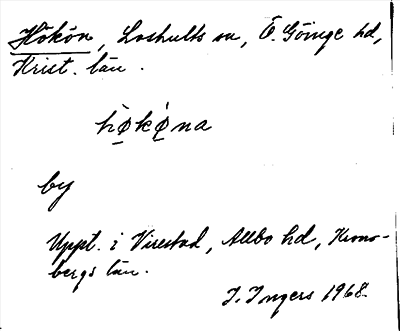 Hökön, Loshults sn, Ö. Göinge hd,
Krist. län.
hø̀kø̀na
by
Uppt. i Virestad, Allbo hd, Krono-
bergs län.
I. Ingers 1968